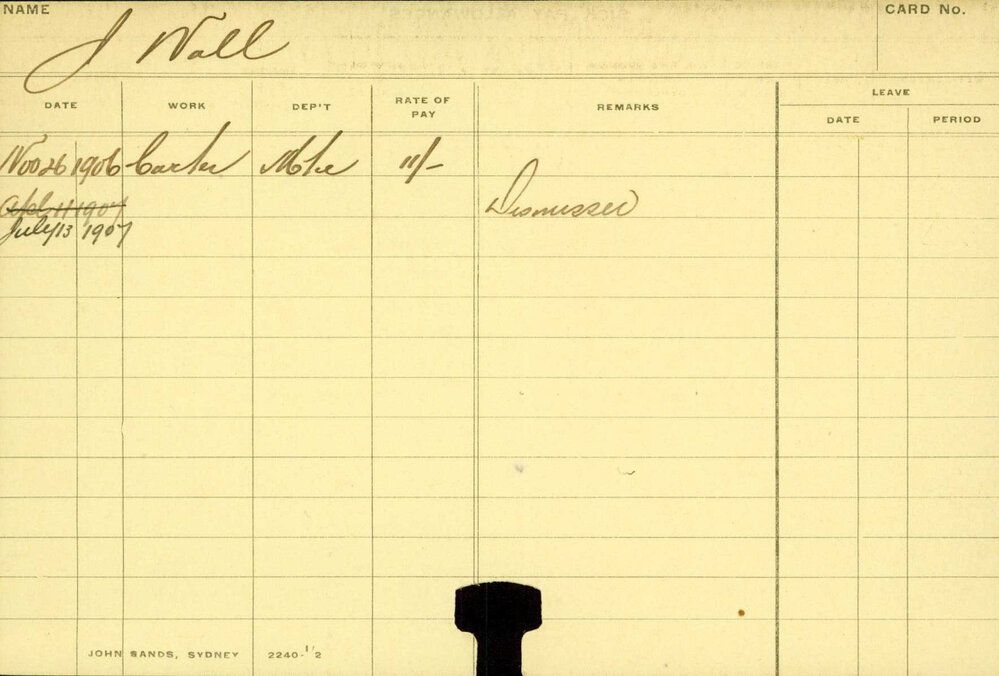 NAME
CARD No.
J Wall
DATE WORK DEP'T RATE OF PAY REMARKS LEAVE
DATE PERIOD
Nov 26 1906 Carter Mtce 11/-
Apl 11 1907 Dismissed
July 13 1907
JOHN SANDS, SYDNEY 2240-1/2